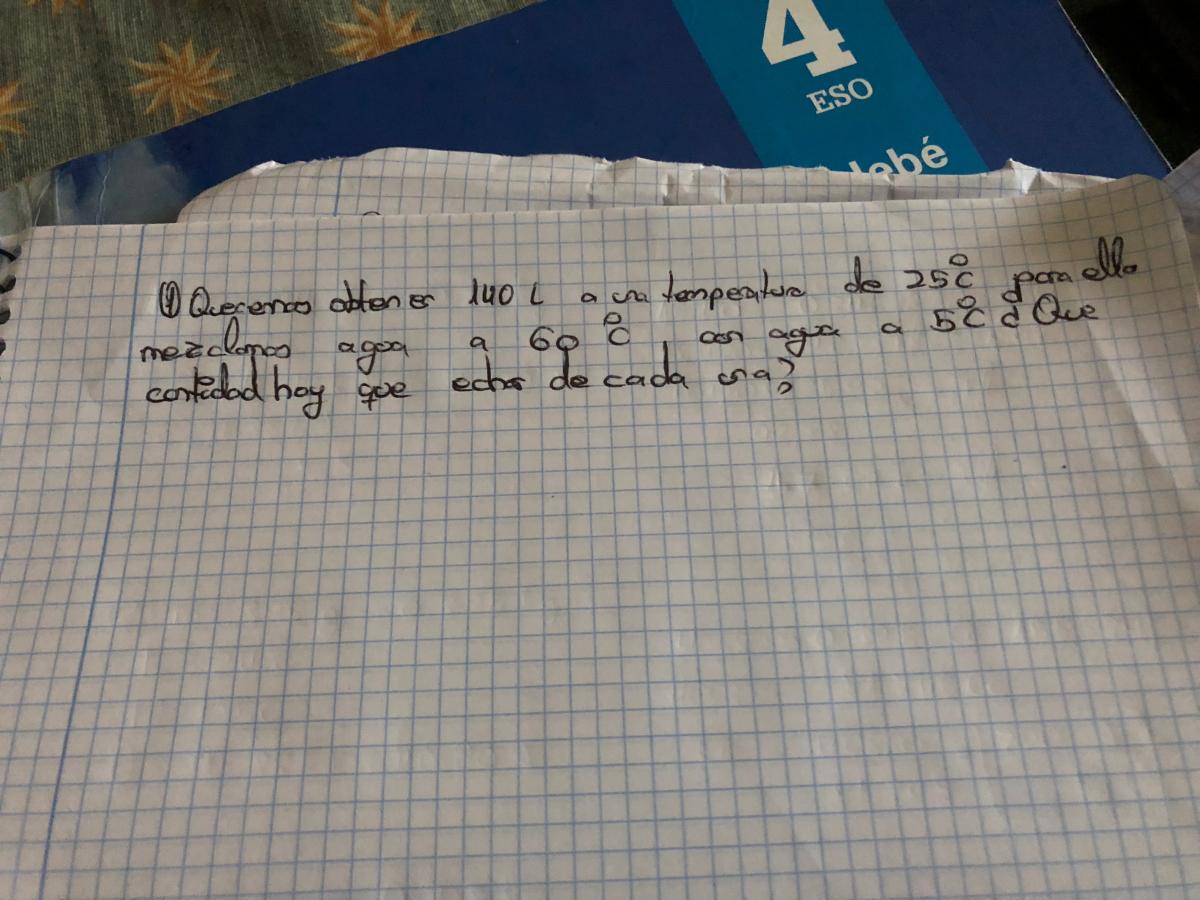 4
ESO
debé
① Queremos obtener 140 L a una temperatura de 25°C para ello
mezclamos agua a 60 °C, con agua a 5°C ¿ Que
cantidad hay que echar de cada una?